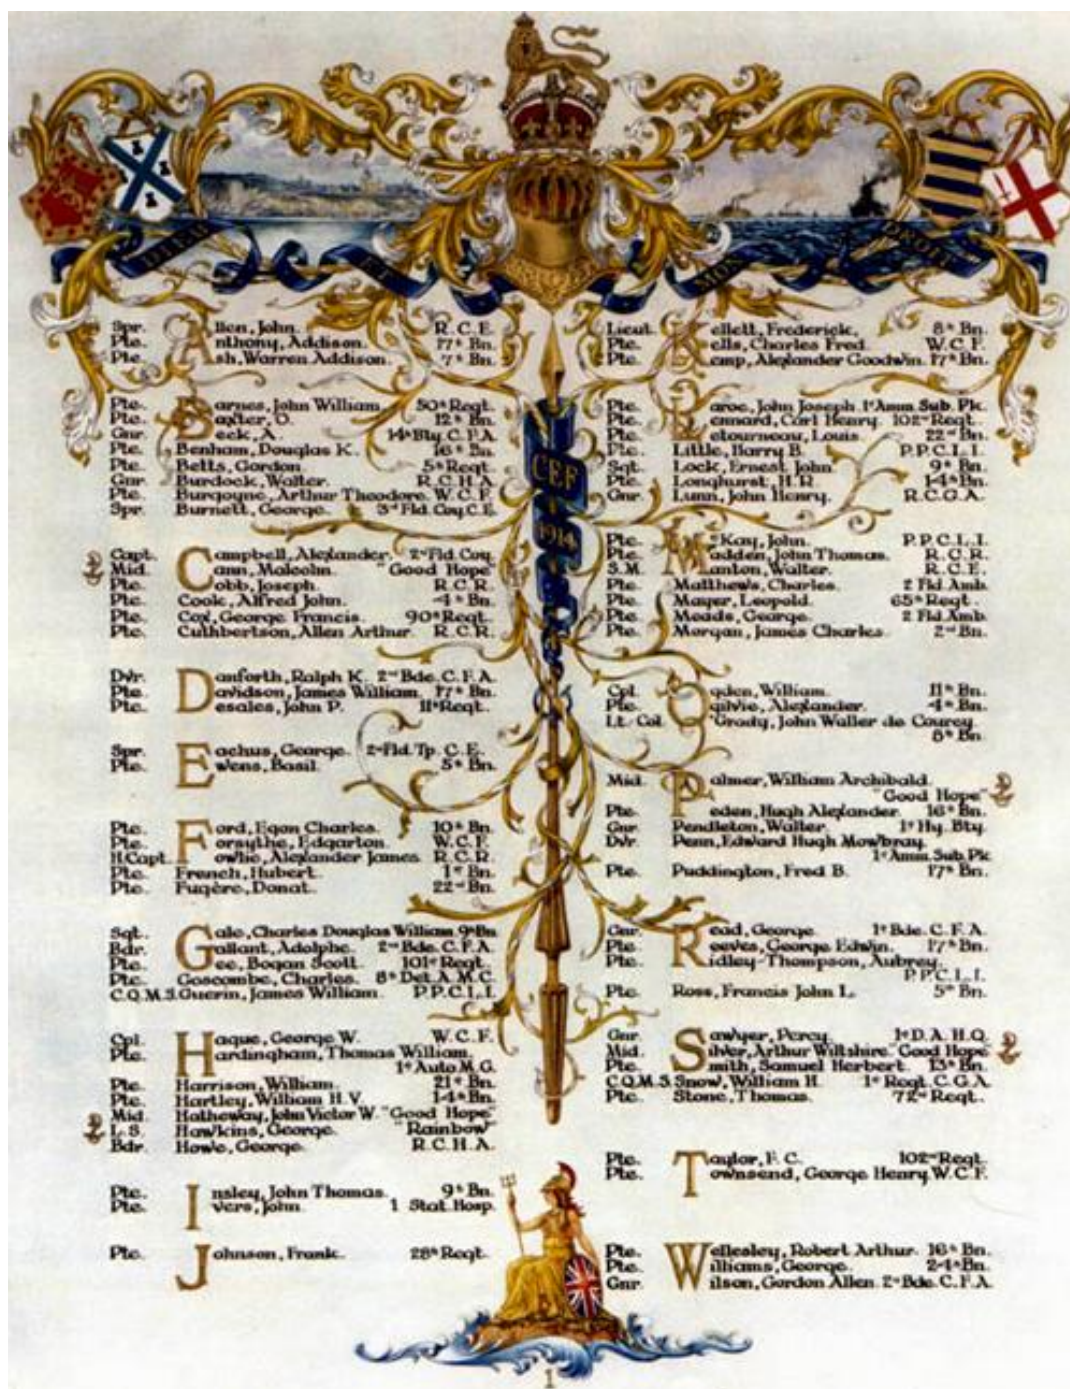 DIEU
ET
MON
DROIT
Spr. Allen, John. R.C.E.
Pte. Anthony, Addison. 17th Bn.
Pte. Ash, Warren Addison. 7th Bn.
Pte. Barnes, John William. 50th Regt.
Pte. Baxter, O. 12th Bn.
Gnr. Beck, A. 14th Bty. C.F.A.
Pte. Benham, Douglas K. 16th Bn.
Pte. Betts, Gordon. 5th Regt.
Gnr. Burdock, Walter. R.C.H.A.
Pte. Burgoyne, Arthur Theodore. W.C.F.
Spr. Burnett, George. 3rd Fld. Coy. C.E.
Capt. Campbell, Alexander. 2nd Fld. Coy.
Mid. Cann, Malcolm. "Good Hope"
Pte. Cobb, Joseph. R.C.R.
Pte. Cook, Alfred John. 4th Bn.
Pte. Cox, George Francis. 90th Regt.
Pte. Cuthbertson, Allen Arthur. R.C.R.
Dvr. Danforth, Ralph K. 2nd Bde. C.F.A.
Pte. Davidson, James William. 17th Bn.
Pte. Desales, John P. 11th Regt.
Spr. Eachus, George. 2nd Fld. Tp. C.E.
Pte. Ewens, Basil. 5th Bn.
Pte. Ford, Egon Charles. 10th Bn.
Pte. Forsythe, Edgarton. W.C.F.
H. Capt. Fowlie, Alexander James. R.C.R.
Pte. French, Hubert. 1st Bn.
Pte. Fugère, Donat. 22nd Bn.
Sgt. Gale, Charles Douglas William. 9th Bn.
Bdr. Gallant, Adolphe. 2nd Bde. C.F.A.
Pte. Gee, Bogan Scott. 101st Regt.
Pte. Goscombe, Charles. 8th Det. A.M.C.
C.Q.M.S. Guerin, James William. P.P.C.L.I.
Cpl. Hague, George W. W.C.F.
Pte. Hardingham, Thomas William.
1st Auto M.G.
Pte. Harrison, William. 21st Bn.
Pte. Hartley, William H.V. 14th Bn.
Mid. Hatheway, John Victor W. "Good Hope"
L.S. Hawkins, George. "Rainbow"
Bdr. Howe, George. R.C.H.A.
Pte. Insley, John Thomas. 9th Bn.
Pte. Ivers, John. 1 Stat. Hosp.
Pte. Johnson, Frank. 28th Regt.
CEF
1914
Lieut. Kellett, Frederick. 8th Bn.
Pte. Kells, Charles Fred. W.C.F.
Pte. Kemp, Alexander Goodwin. 17th Bn.
Pte. Laroc, John Joseph. 1st Amm. Sub. Pk.
Pte. Lennard, Carl Henry. 102nd Regt.
Pte. Letourneau, Louis. 22nd Bn.
Pte. Little, Harry B. P.P.C.L.I.
Sgt. Lock, Ernest John. 9th Bn.
Pte. Longhurst, H.R. 14th Bn.
Gnr. Lunn, John Henry. R.C.G.A.
Pte. McKay, John. P.P.C.L.I.
Pte. Madden, John Thomas. R.C.R.
S.M. Manton, Walter. R.C.E.
Pte. Matthews, Charles. 2 Fld. Amb.
Pte. Mayer, Leopold. 65th Regt.
Pte. Meads, George. 2 Fld. Amb.
Pte. Morgan, James Charles. 2nd Bn.
Cpl. Ogden, William. 11th Bn.
Pte. Ogilvie, Alexander. 4th Bn.
Lt. Col. O'Grady, John Waller de Courcy.
8th Bn.
Mid. Palmer, William Archibald.
"Good Hope"
Pte. Peden, Hugh Alexander. 16th Bn.
Gnr. Pendleton, Walter. 1st Hy. Bty.
Dvr. Penn, Edward Hugh Mowbray.
1st Amm. Sub. Pk.
Pte. Puddington, Fred B. 17th Bn.
Gnr. Read, George. 1st Bde. C.F.A.
Pte. Reeves, George Edwin. 17th Bn.
Pte. Ridley-Thompson, Aubrey.
P.P.C.L.I.
Pte. Ross, Francis John L. 5th Bn.
Gnr. Sawyer, Percy. 1st D.A.H.Q.
Mid. Silver, Arthur Wiltshire. "Good Hope"
Pte. Smith, Samuel Herbert. 13th Bn.
C.Q.M.S. Snow, William H. 1st Regt. C.G.A.
Pte. Stone, Thomas. 72nd Regt.
Pte. Taylor, F.C. 102nd Regt.
Pte. Townsend, George Henry. W.C.F.
Pte. Wellesley, Robert Arthur. 16th Bn.
Pte. Williams, George. 24th Bn.
Gnr. Wilson, Gordon Allen. 2nd Bde. C.F.A.
1